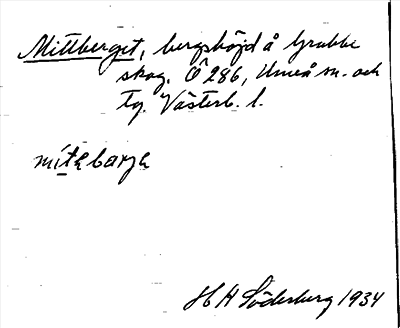 Mittberget, bergshöjd å Grubbe
skog. Ö 286, Umeå sn. och
tg. Västerb. l.
mitabarja
H A Söderberg 1934